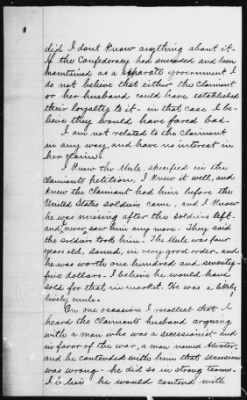 did I dont know anything about it.
If the Confederacy had succeeded and been
maintained as a separate government I
do not believe that either the claimant
or her husband could have established
their loyalty to it - in that case I be-
lieve they would have fared bad.
I am not related to the claimant
in any way, and have no interest in
her claim.
I knew the Mule, specified in the
claimants petition, I knew it well, and
knew the claimant had him before the
United States soldiers came, and I know
he was missing after the soldiers left -
and I never saw him any more. They said
the soldiers took him. The Mule was four
years old, sound, in very good order, and
he was worth one hundred and seventy-
five dollars. I believe he would have
sold for that in market. He was a
lively mule.
On one occasion I recollect that I
heard the claimants husband arguing
with a man who was a secessionist and
in favor of the war, a man named
and he contended with him that secession
was wrong - he did so in strong terms.
he would contend with